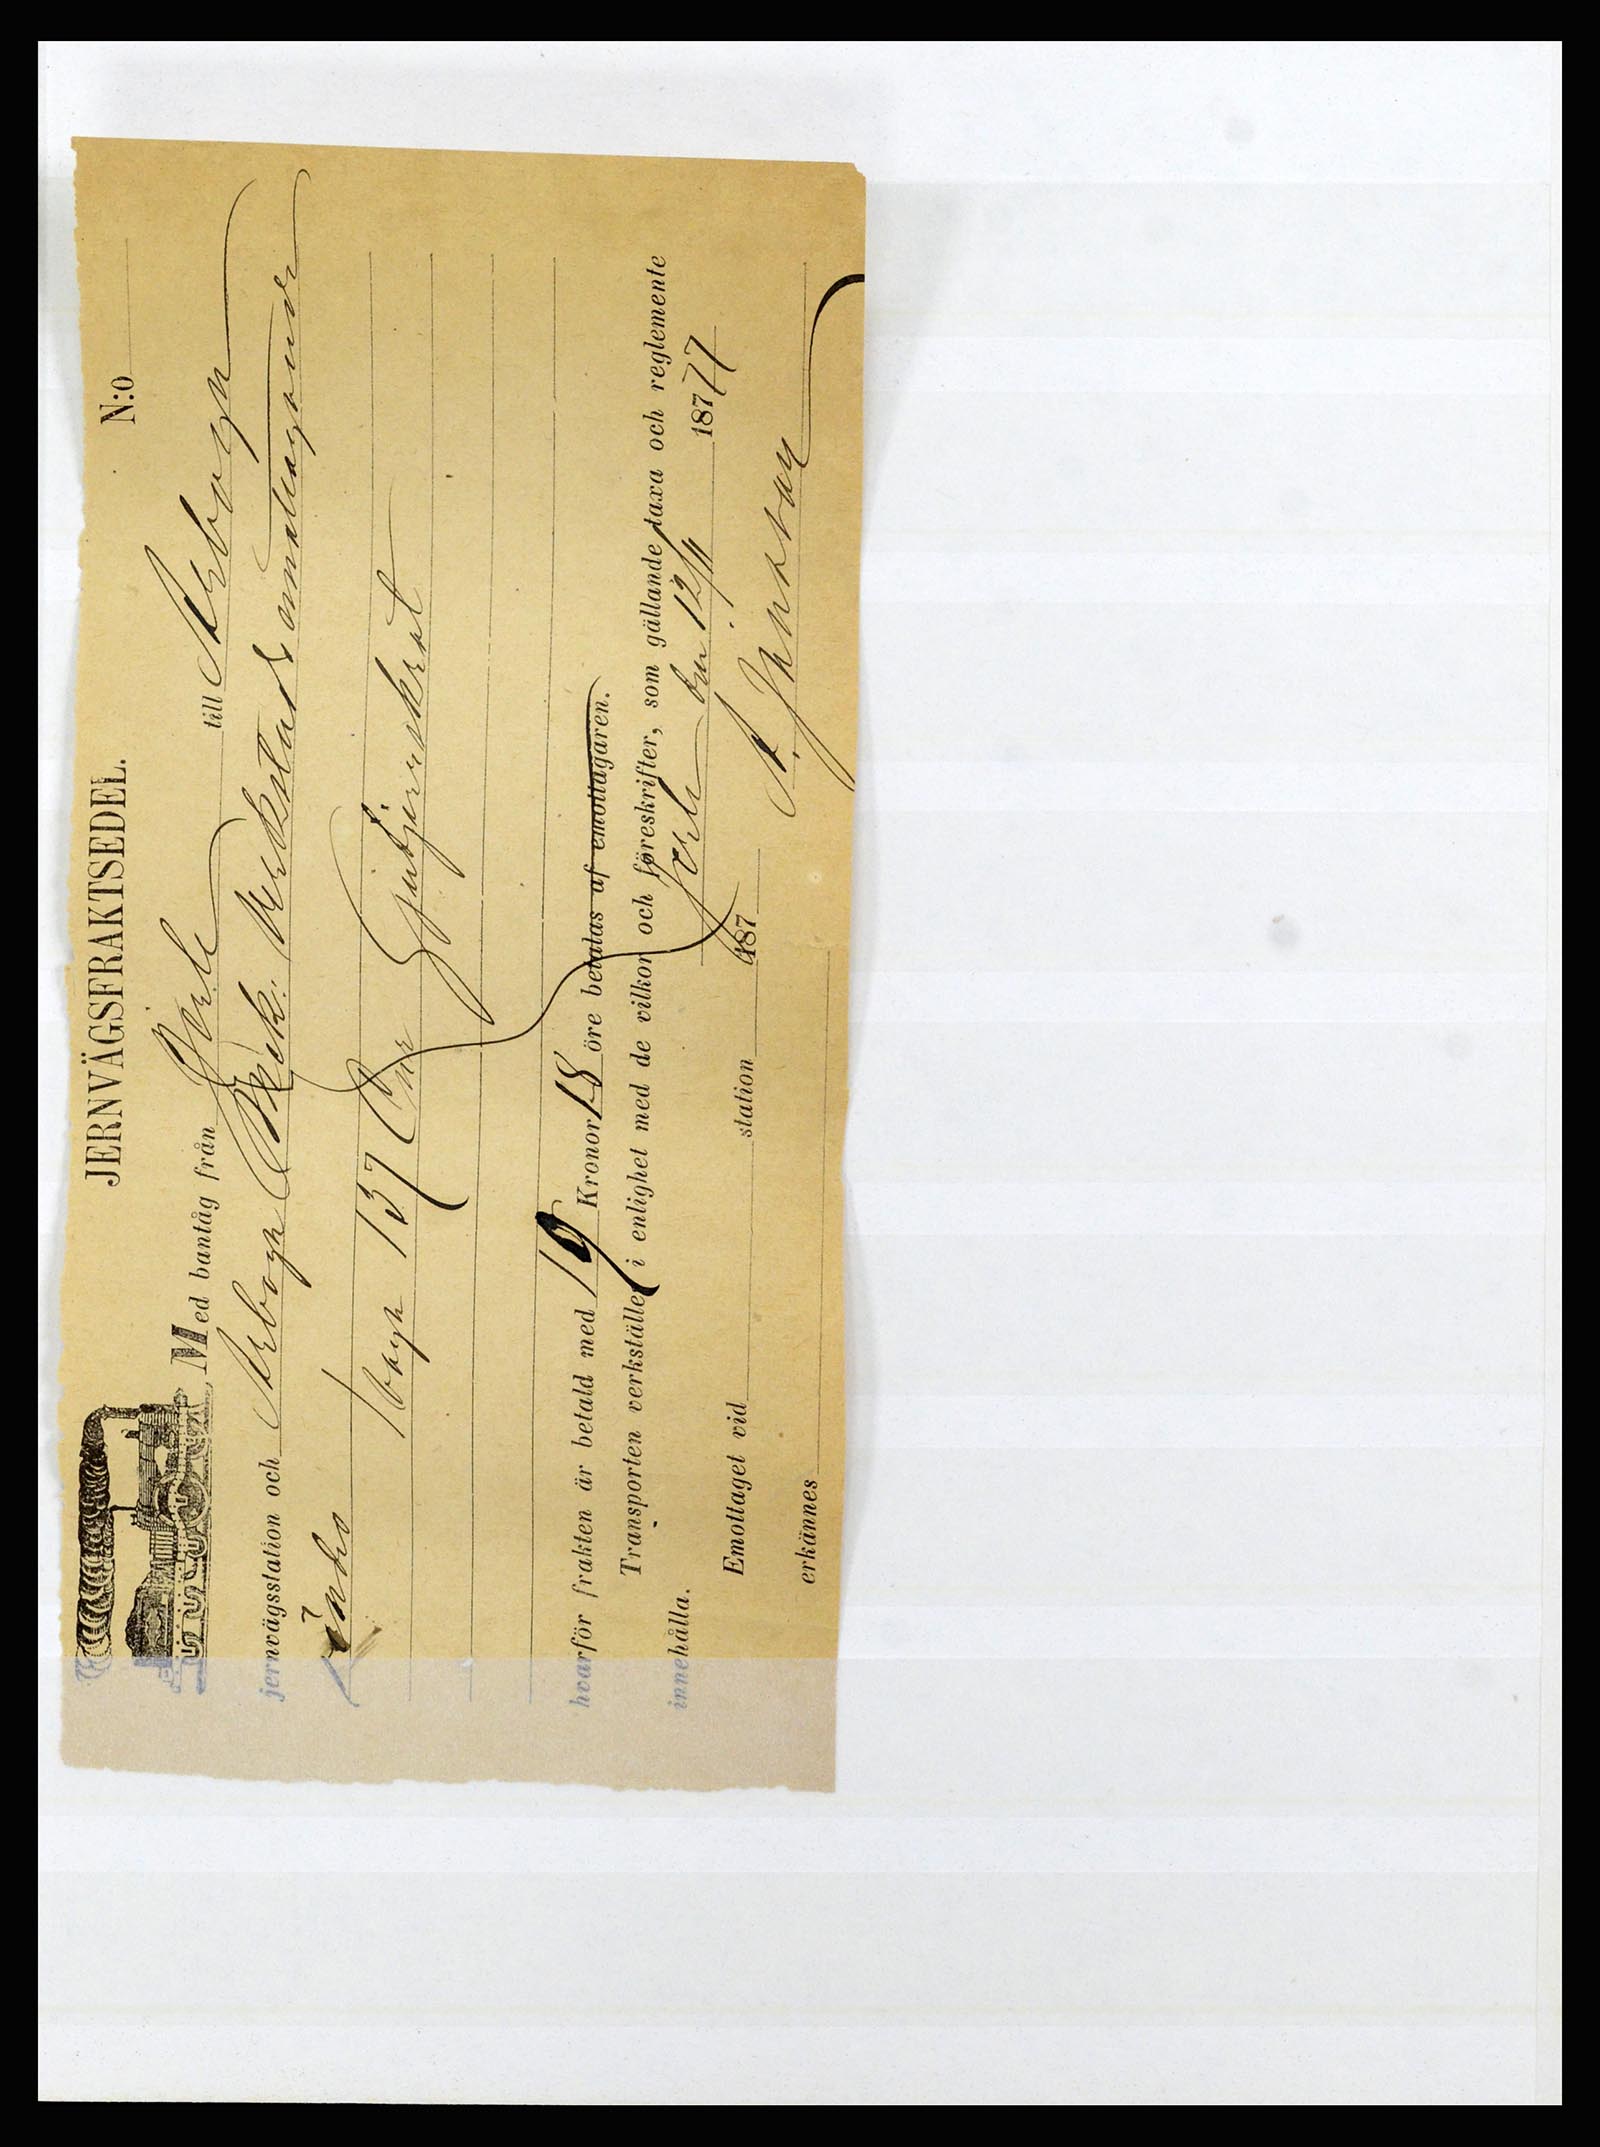 JERNVÄGSFRAKTSEDEL. N:o
Med bantåg från Jerle till Arboga
jernvägsstation och Arboga Mek: Verkstad
1 vagn 137 Cnr Gjutjernskrot
hvarför frakten är betald med 19 Kronor 18 öre betalas af emottagaren.
Transporten verkställes i enlighet med de vilkor och föreskrifter, som gällande taxa och reglemente
innehålla.
Jerle den 12/11 1877
Emottaget vid station 187
erkännes